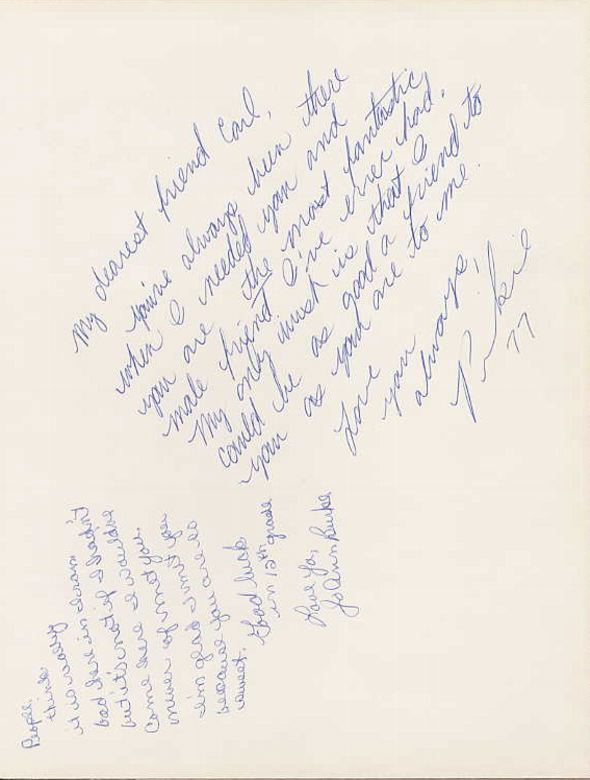 My dearest friend Earl,
You've always been there
when I needed you and
you are the most fantastic
male friend I've ever had.
My only wish is that I
could be as good a friend to
you as you are to me.
Love
you
always,
77
People
think
it is really
bad here in Iran
but it's not if I hadn't
come here I would've
never of met you.
I'm glad I met you
because you are so
sweet. Good luck
in 12th grade
Love Ya,
JoAnn Burke